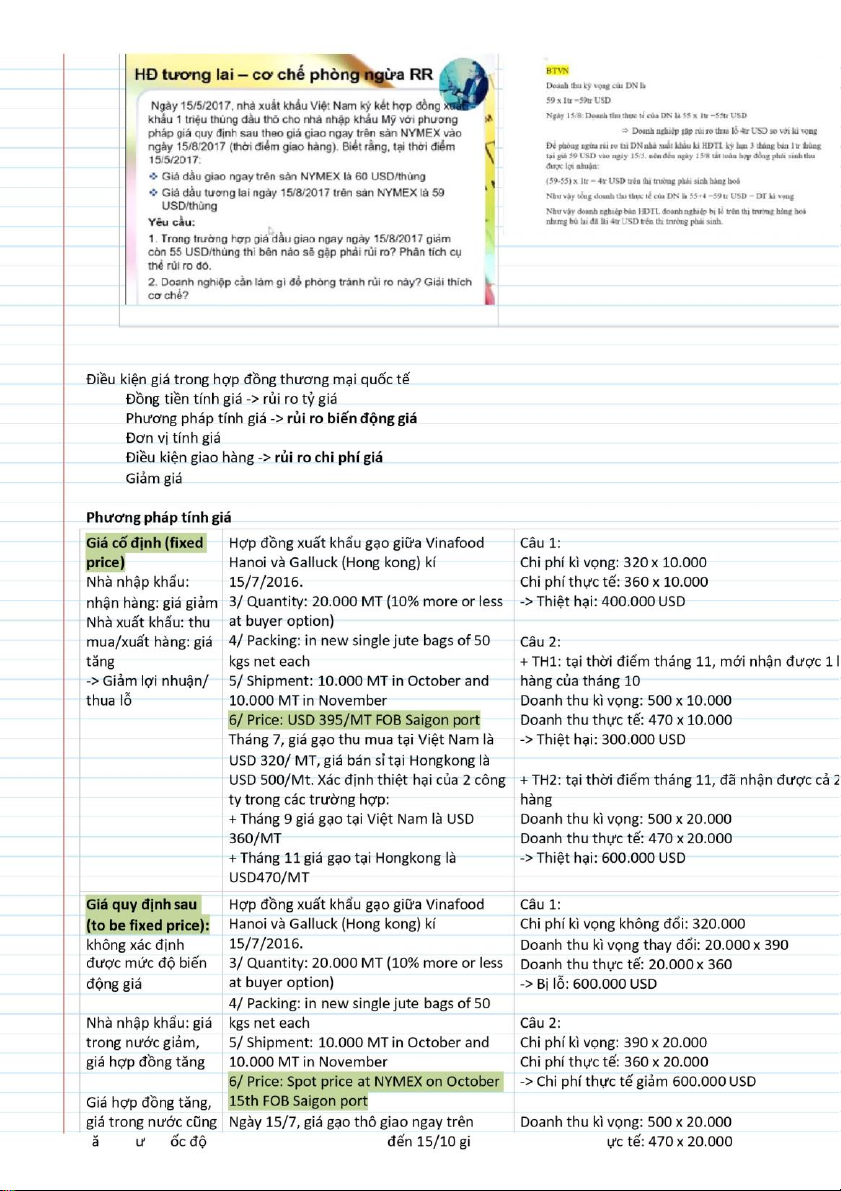 HĐ tương lai – cơ chế phòng ngừa RR
Ngày 15/5/2017, nhà xuất khẩu Việt Nam ký kết hợp đồng xuất
khẩu 1 triệu thùng dầu thô cho nhà nhập khẩu Mỹ với phương
pháp giá quy định sau theo giá giao ngay trên sàn NYMEX vào
ngày 15/8/2017 (thời điểm giao hàng). Biết rằng, tại thời điểm
15/5/2017:
❖ Giá dầu giao ngay trên sàn NYMEX là 60 USD/thùng
❖ Giá dầu tương lai ngày 15/8/2017 trên sàn NYMEX là 59
USD/thùng
Yêu cầu:
1. Trong trường hợp giá dầu giao ngay ngày 15/8/2017 giảm
còn 55 USD/thùng thì bên nào sẽ gặp phải rủi ro? Phân tích cụ
thể rủi ro đó.
2. Doanh nghiệp cần làm gì để phòng tránh rủi ro này? Giải thích
cơ chế?
BTVN
Doanh thu kỳ vọng của DN là
59 x 1tr =59tr USD
Ngày 15/8: Doanh thu thực tế của DN là 55 x 1tr =55tr USD
⇒ Doanh nghiệp gặp rủi ro thua lỗ 4tr USD so với kì vọng
Để phòng ngừa rủi ro thì DN nhà xuất khẩu kí HĐTL kỳ hạn 3 tháng bán 1tr thùng
tại giá 59 USD vào ngày 15/5, nên đến ngày 15/8 tất toán hợp đồng phái sinh thu
được lợi nhuận:
(59-55) x 1tr = 4tr USD trên thị trường phái sinh hàng hoá
Như vậy tổng doanh thu thực tế của DN là 55+4 =59tr USD = DT kì vọng
Như vậy doanh nghiệp bán HĐTL doanh nghiệp bị lỗ trên thị trường hàng hoá
nhưng bù lại đã lãi 4tr USD trên thị trường phái sinh.
Điều kiện giá trong hợp đồng thương mại quốc tế
Đồng tiền tính giá -> rủi ro tỷ giá
Phương pháp tính giá -> rủi ro biến động giá
Đơn vị tính giá
Điều kiện giao hàng -> rủi ro chi phí giá
Giảm giá
Phương pháp tính giá
Giá cố định (fixed
price)
Nhà nhập khẩu:
nhận hàng: giá giảm
Nhà xuất khẩu: thu
mua/xuất hàng: giá
tăng
-> Giảm lợi nhuận/
thua lỗ
Hợp đồng xuất khẩu gạo giữa Vinafood
Hanoi và Galluck (Hong kong) kí
15/7/2016.
3/ Quantity: 20.000 MT (10% more or less
at buyer option)
4/ Packing: in new single jute bags of 50
kgs net each
5/ Shipment: 10.000 MT in October and
10.000 MT in November
6/ Price: USD 395/MT FOB Saigon port
Tháng 7, giá gạo thu mua tại Việt Nam là
USD 320/ MT, giá bán sỉ tại Hongkong là
USD 500/Mt. Xác định thiệt hại của 2 công
ty trong các trường hợp:
+ Tháng 9 giá gạo tại Việt Nam là USD
360/MT
+ Tháng 11 giá gạo tại Hongkong là
USD470/MT
Câu 1:
Chi phí kì vọng: 320 x 10.000
Chi phí thực tế: 360 x 10.000
-> Thiệt hại: 400.000 USD
Câu 2:
+ TH1: tại thời điểm tháng 11, mới nhận được 1 l
hàng của tháng 10
Doanh thu kì vọng: 500 x 10.000
Doanh thu thực tế: 470 x 10.000
-> Thiệt hại: 300.000 USD
+ TH2: tại thời điểm tháng 11, đã nhận được cả 2
hàng
Doanh thu kì vọng: 500 x 20.000
Doanh thu thực tế: 470 x 20.000
-> Thiệt hại: 600.000 USD
Giá quy định sau
(to be fixed price):
không xác định
được mức độ biến
động giá
Nhà nhập khẩu: giá
trong nước giảm,
giá hợp đồng tăng
Giá hợp đồng tăng,
giá trong nước cũng
ă ư ốc độ
Hợp đồng xuất khẩu gạo giữa Vinafood
Hanoi và Galluck (Hong kong) kí
15/7/2016.
3/ Quantity: 20.000 MT (10% more or less
at buyer option)
4/ Packing: in new single jute bags of 50
kgs net each
5/ Shipment: 10.000 MT in October and
10.000 MT in November
6/ Price: Spot price at NYMEX on October
15th FOB Saigon port
Ngày 15/7, giá gạo thô giao ngay trên
đến 15/10 gi
Câu 1:
Chi phí kì vọng không đổi: 320.000
Doanh thu kì vọng thay đổi: 20.000 x 390
Doanh thu thực tế: 20.000 x 360
-> Bị lỗ: 600.000 USD
Câu 2:
Chi phí kì vọng: 390 x 20.000
Chi phí thực tế: 360 x 20.000
-> Chi phí thực tế giảm 600.000 USD
Doanh thu kì vọng: 500 x 20.000
ực tế: 470 x 20.000